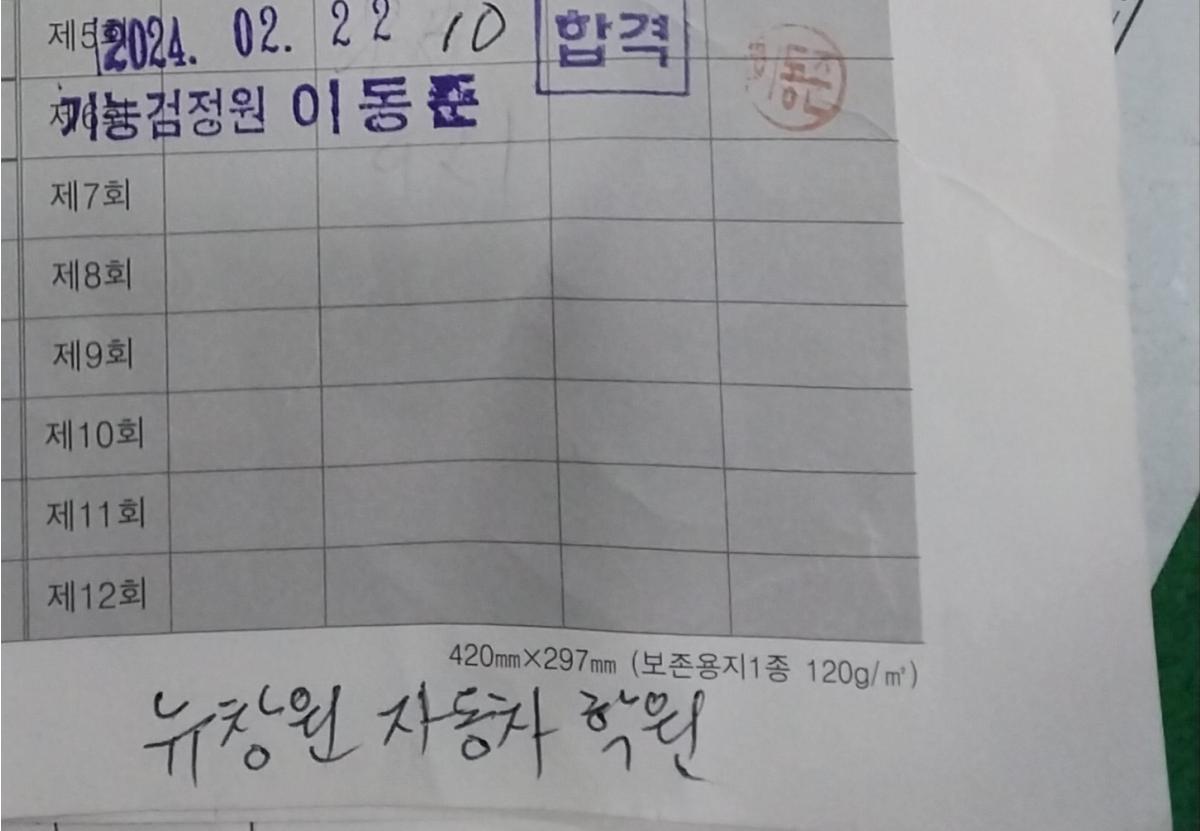 제5회 2024. 02. 22 10 합격
제6회 기능검정원 이동준
제7회
제8회
제9회
제10회
제11회
제12회
420㎜×297㎜ (보존용지1종 120g/㎡)
뉴창원 자동차 학원